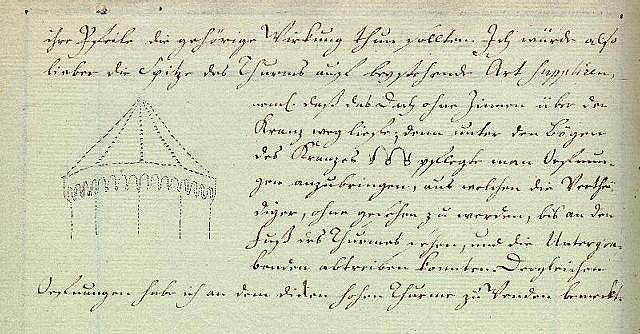 ihre Pfeile die gehörige Wirkung thun sollten. Ich würde also
lieber die Spitze des Thurms auf beystehende Art suppliren,
neml. daß das Dach ohne Zinnen über den
Kranz weg liefe; denn unter den Bögen
des Kranzes §§§ pflegte man Oefnun-
gen anzubringen, aus welchen die Verthei-
diger, ohne gesehen zu werden, bis an den
Fuß des Thurmes sehen, und die Untergra-
benden abtreiben konnten. Dergleichen
Oefnungen habe ich an dem dicken hohen Thurme zu Wenden bemerkt.